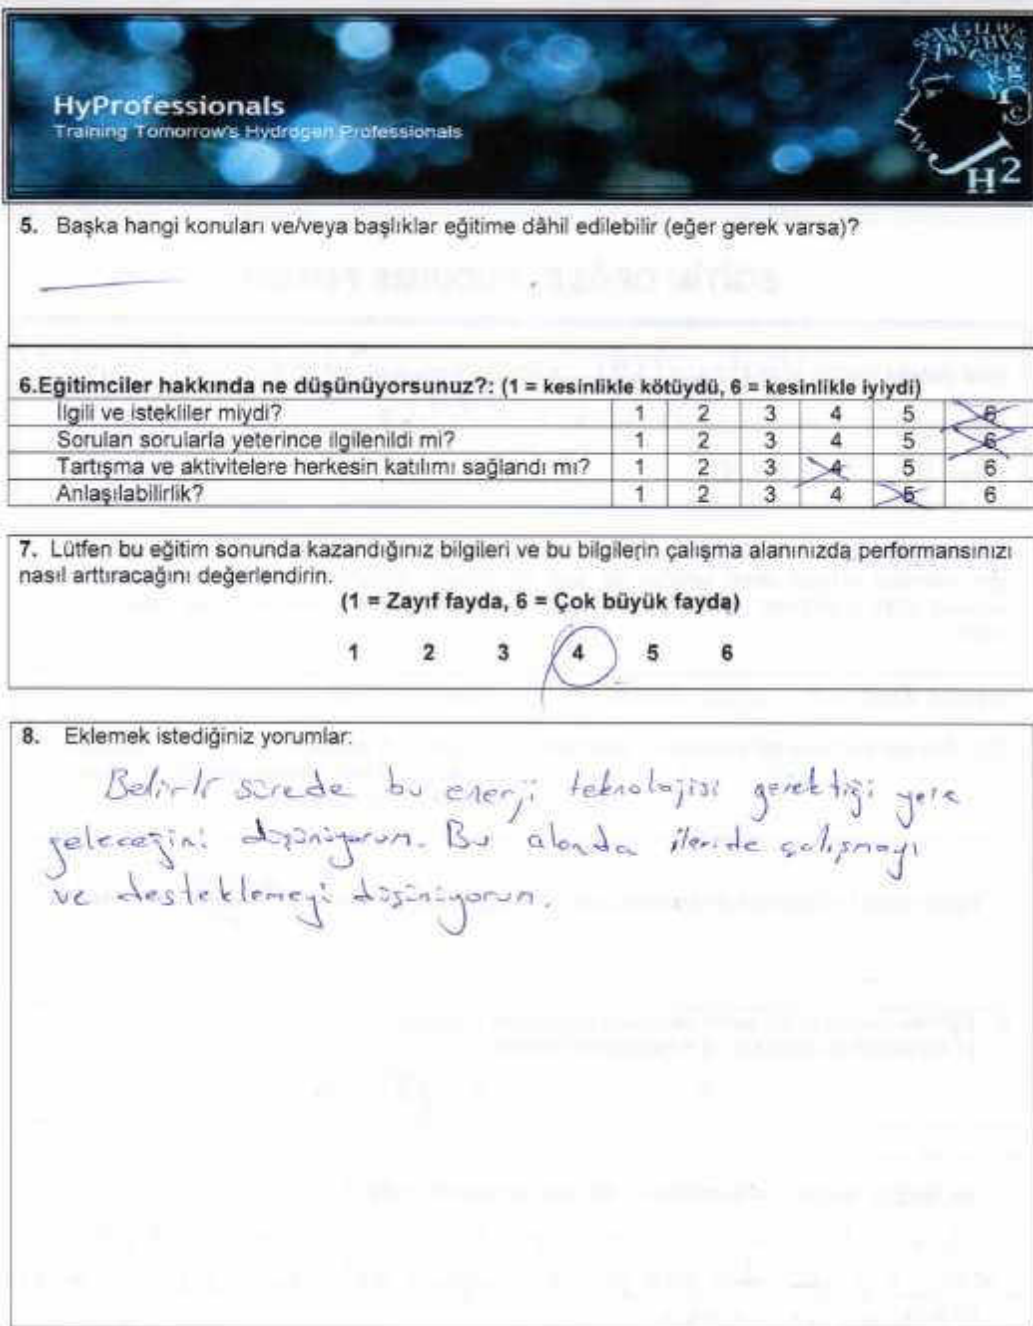 HyProfessionals
Training Tomorrow's Hydrogen Professionals
H2
5. Başka hangi konuları ve/veya başlıklar eğitime dâhil edilebilir (eğer gerek varsa)?
6.Eğitimciler hakkında ne düşünüyorsunuz?: (1 = kesinlikle kötüydü, 6 = kesinlikle iyiydi)
İlgili ve istekliler miydi? 1 2 3 4 5 6
Sorulan sorularla yeterince ilgilenildi mi? 1 2 3 4 5 6
Tartışma ve aktivitelere herkesin katılımı sağlandı mı? 1 2 3 4 5 6
Anlaşılabilirlik? 1 2 3 4 5 6
7. Lütfen bu eğitim sonunda kazandığınız bilgileri ve bu bilgilerin çalışma alanınızda performansınızı
nasıl arttıracağını değerlendirin.
(1 = Zayıf fayda, 6 = Çok büyük fayda)
1 2 3 4 5 6
8. Eklemek istediğiniz yorumlar:
Belirli sürede bu enerji teknolojisi gerektiği yere
geleceğini düşünüyorum. Bu alanda ileride çalışmayı
ve desteklemeyi düşünüyorum.